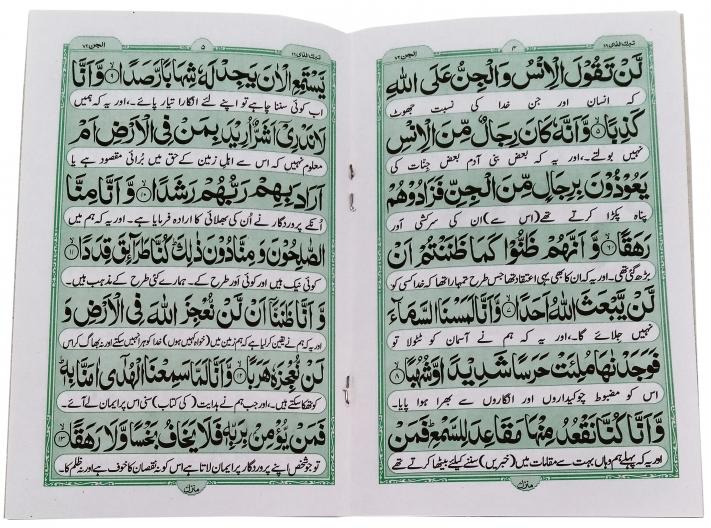 تبٰرك الذى ٢٩
٤
الجن ٧٢
لَّنْ تَقُوْلَ الْاِنْسُ وَالْجِنُّ عَلَى اللّٰهِ
کہ انسان اور جن خدا کی نسبت جھوٹ
كَذِبًا ۙ﴿٥﴾ وَّاَنَّهٗ كَانَ رِجَالٌ مِّنَ الْاِنْسِ
نہیں بولتے۔، اور یہ کہ بعض بنی آدم بعض جِنّات کی
يَعُوْذُوْنَ بِرِجَالٍ مِّنَ الْجِنِّ فَزَادُوْهُمْ
پناہ پکڑا کرتے تھے (اس سے) ان کی سرکشی اور
رَهَقًا ۙ﴿٦﴾ وَّاَنَّهُمْ ظَنُّوْا كَمَا ظَنَنْتُمْ اَنْ
بڑھ گئی تھی۔ اور یہ کہ ان کا بھی یہی اعتقاد تھا جس طرح تمہارا تھا کہ خدا کسی کو
لَّنْ يَّبْعَثَ اللّٰهُ اَحَدًا ۙ﴿٧﴾ وَّاَنَّا لَمَسْنَا السَّمَآءَ
نہیں جلائے گا۔، اور یہ کہ ہم نے آسمان کو ٹٹولا تو
فَوَجَدْنٰهَا مُلِئَتْ حَرَسًا شَدِيْدًا وَّشُهُبًا ۙ﴿٨﴾
اس کو مضبوط چوکیداروں اور انگاروں سے بھرا ہوا پایا۔
وَّاَنَّا كُنَّا نَقْعُدُ مِنْهَا مَقَاعِدَ لِلسَّمْعِ ؕ فَمَنْ
اور یہ کہ پہلے ہم وہاں بہت سے مقامات میں (خبریں) سننے کیلئے بیٹھا کرتے تھے
منزل
تبٰرك الذى ٢٩
٥
الجن ٧٢
يَّسْتَمِعِ الْاٰنَ يَجِدْ لَهٗ شِهَابًا رَّصَدًا ۙ﴿٩﴾ وَّاَنَّا
اب کوئی سننا چاہے تو اپنے لئے انگارا تیار پائے۔، اور یہ کہ ہمیں
لَا نَدْرِيْٓ اَشَرٌّ اُرِيْدَ بِمَنْ فِى الْاَرْضِ اَمْ
معلوم نہیں کہ اس سے اہل زمین کے حق میں بُرائی مقصود ہے یا
اَرَادَ بِهِمْ رَبُّهُمْ رَشَدًا ۙ﴿١٠﴾ وَّاَنَّا مِنَّا
انکے پروردگار نے اُن کی بھلائی کا ارادہ فرمایا ہے۔ اور یہ کہ ہم میں
الصّٰلِحُوْنَ وَمِنَّا دُوْنَ ذٰلِكَ ؕ كُنَّا طَرَآئِقَ قِدَدًا ۙ﴿١١﴾
کوئی نیک ہیں اور کوئی اور طرح کے۔ ہمارے کئی طرح کے مذہب ہیں۔
وَّاَنَّا ظَنَنَّآ اَنْ لَّنْ نُّعْجِزَ اللّٰهَ فِى الْاَرْضِ وَ
اور یہ کہ ہم نے یقین کر لیا ہے کہ ہم زمین میں (خواہ کہیں ہوں) خدا کو ہرا نہیں سکتے اور نہ بھاگ کر اس
لَنْ نُّعْجِزَهٗ هَرَبًا ۙ﴿١٢﴾ وَّاَنَّا لَمَّا سَمِعْنَا الْهُدٰٓى اٰمَنَّا بِهٖ ؕ
کو تھکا سکتے ہیں۔، اور جب ہم نے ہدایت (کی کتاب) سنی اس پر ایمان لے آئے۔
فَمَنْ يُّؤْمِنْۢ بِرَبِّهٖ فَلَا يَخَافُ بَخْسًا وَّلَا رَهَقًا ۙ﴿١٣﴾
تو جو شخص اپنے پروردگار پر ایمان لاتا ہے اس کو نہ نقصان کا خوف ہے اور نہ ظلم کا۔
منزل